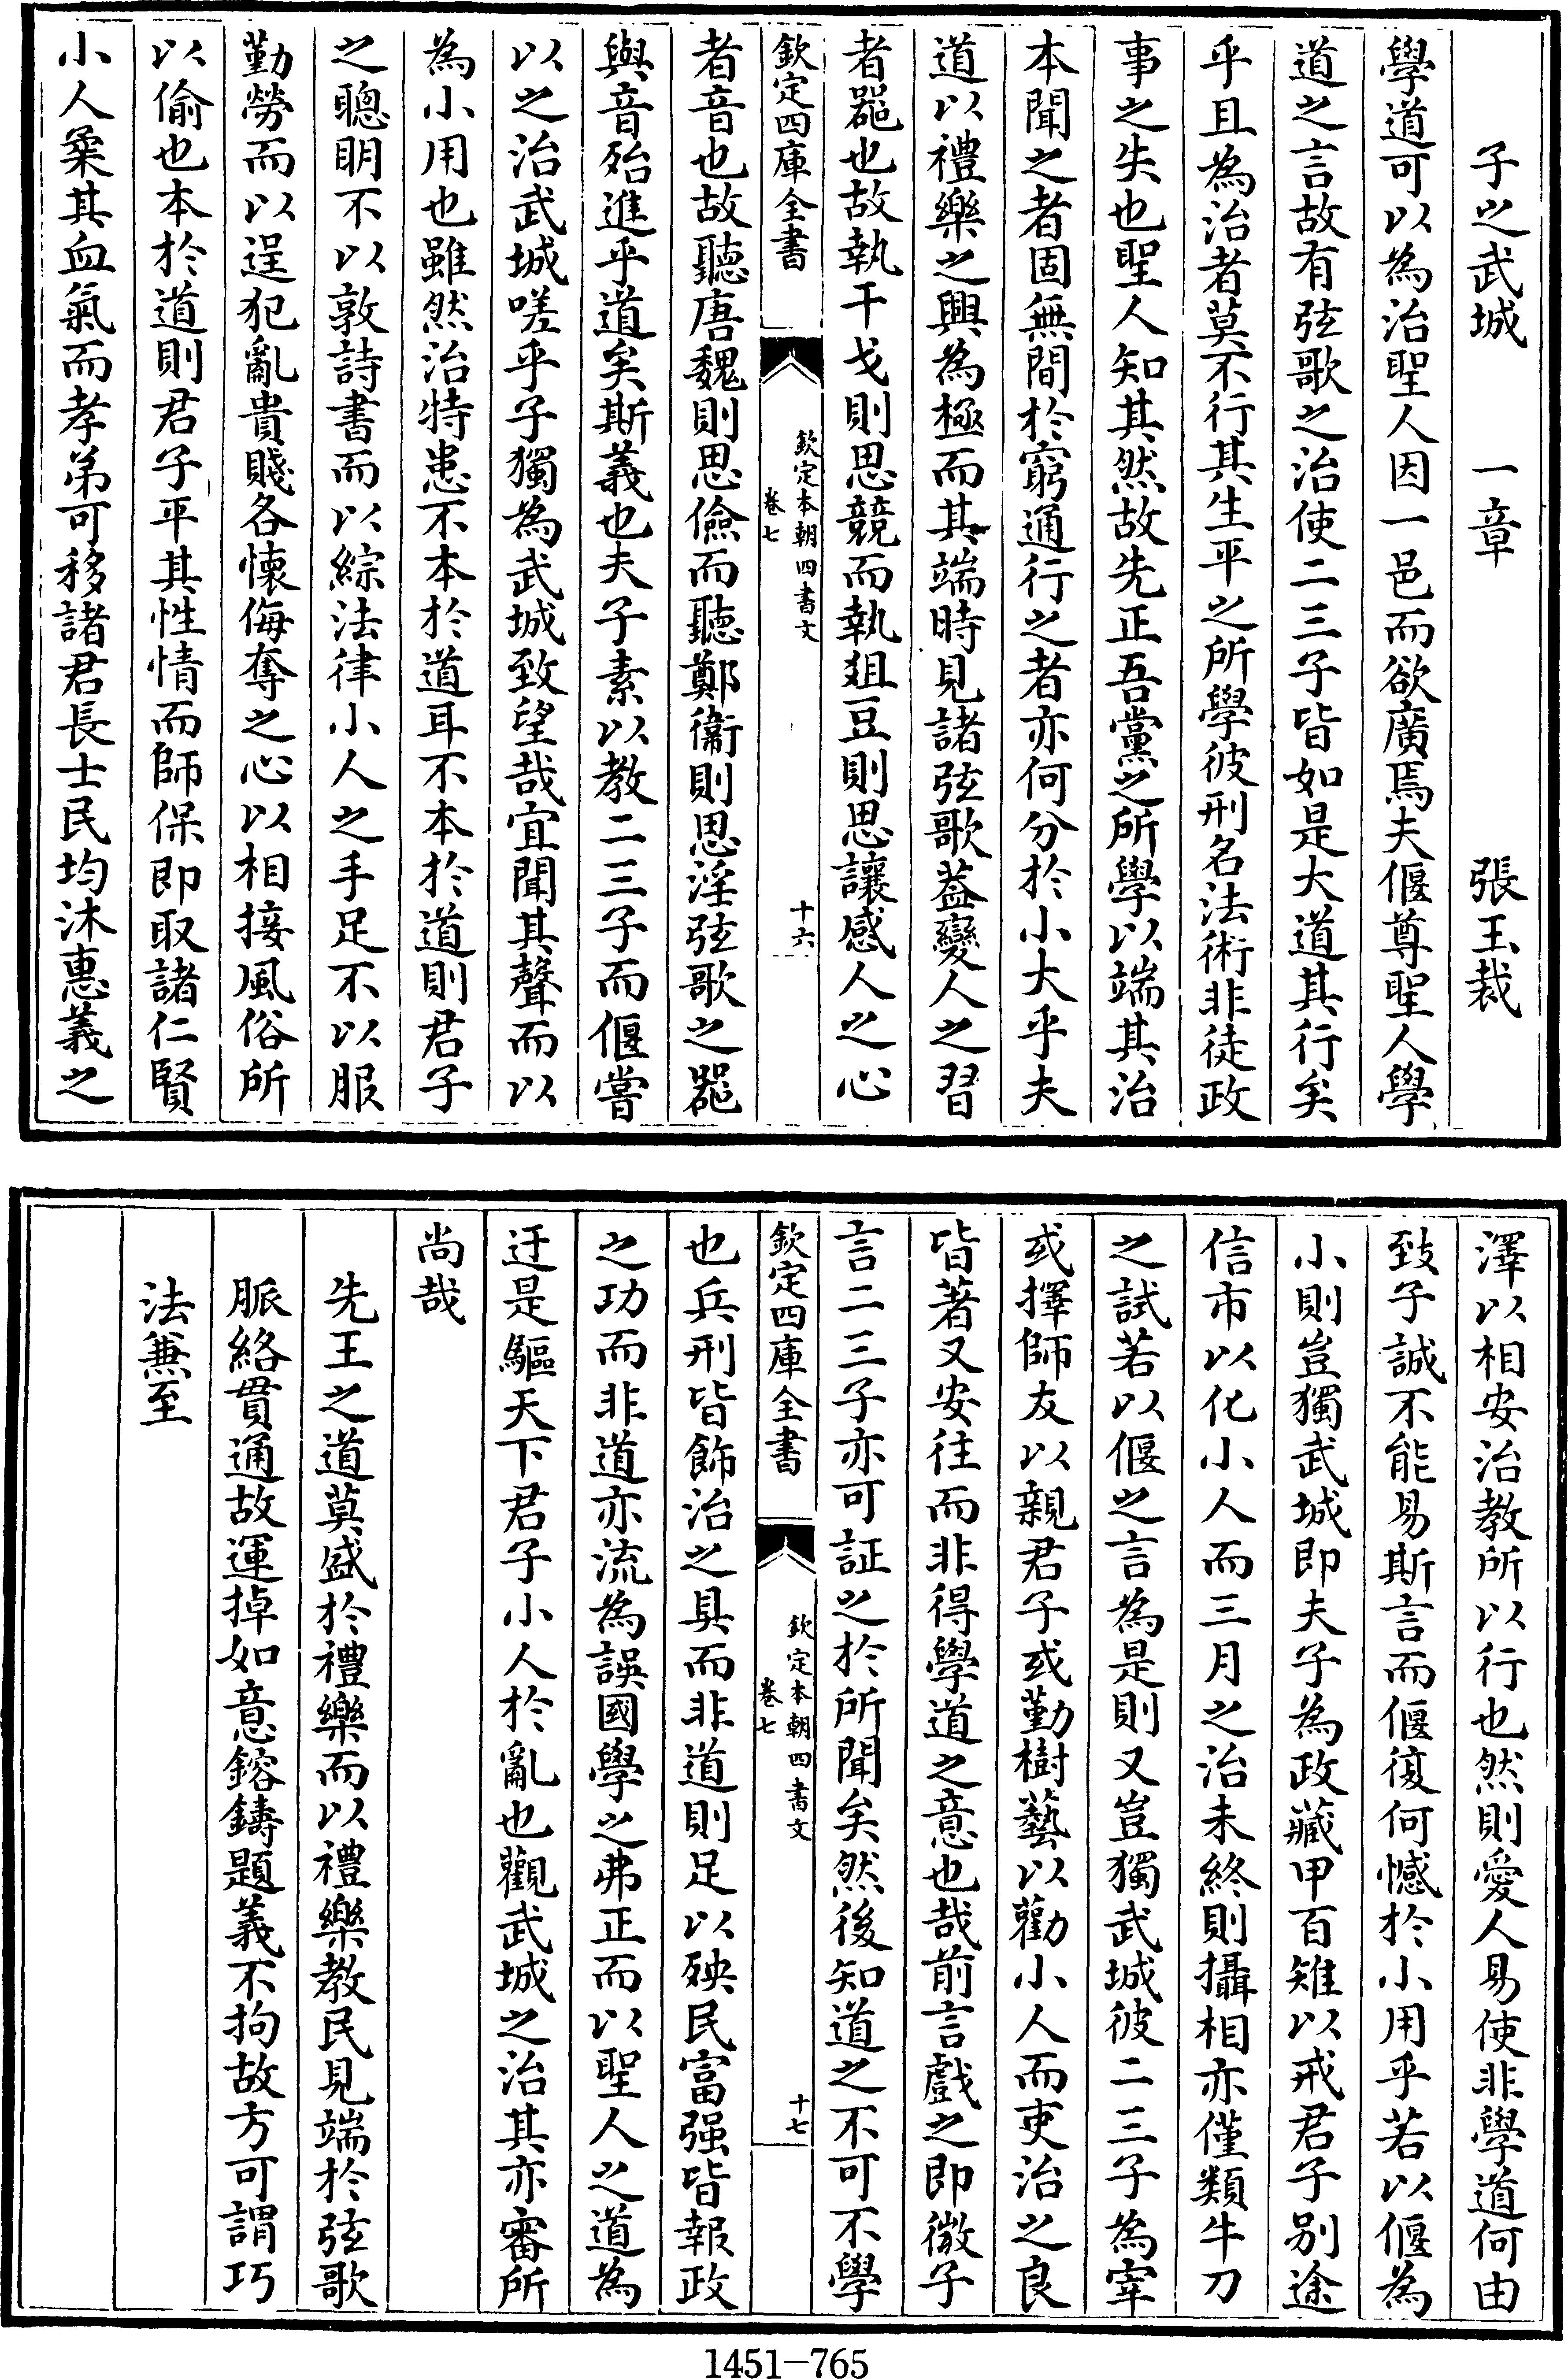 子之武城　一章　張玉裁
學道可以為治聖人因一邑而欲廣焉夫偃尊聖人學
道之言故有弦歌之治使二三子皆如是大道其行矣
乎且為治者莫不行其生平之所學彼刑名法術非徒政
事之失也聖人知其然故先正吾黨之所學以端其治
本聞之者固無間於窮通行之者亦何分於小大乎夫
道以禮樂之興為極而其端時見諸弦歌葢變人之習
者噐也故執干戈則思競而執俎豆則思讓感人之心
欽定四庫全書
欽定本朝四書文
卷七
十六
者音也故聽唐魏則思儉而聽鄭衞則思淫弦歌之噐
與音殆進乎道矣斯義也夫子素以教二三子而偃嘗
以之治武城嗟乎子獨為武城致望哉宜聞其聲而以
為小用也雖然治特患不本於道耳不本於道則君子
之聰明不以敦詩書而以綜法律小人之手足不以服
勤勞而以逞犯亂貴賤各懷侮奪之心以相接風俗所
以偷也本於道則君子平其性情而師保即取諸仁賢
小人柔其血氣而孝弟可移諸君長士民均沐惠義之
澤以相安治教所以行也然則愛人易使非學道何由
致子誠不能易斯言而偃復何憾於小用乎若以偃為
小則豈獨武城即夫子為政藏甲百雉以戒君子别途
信市以化小人而三月之治未終則攝相亦僅類牛刀
之試若以偃之言為是則又豈獨武城彼二三子為宰
或擇師友以親君子或勤樹藝以勸小人而吏治之良
皆著又安往而非得學道之意也哉前言戲之即徵子
言二三子亦可証之於所聞矣然後知道之不可不學
欽定四庫全書
欽定本朝四書文
卷七
十七
也兵刑皆飾治之具而非道則足以殃民富强皆報政
之功而非道亦流為誤國學之弗正而以聖人之道為
迂是驅天下君子小人於亂也觀武城之治其亦審所
尚哉
先王之道莫盛於禮樂而以禮樂教民見端於弦歌
脈絡貫通故運掉如意鎔鑄題義不拘故方可謂巧
法兼至
1451-765